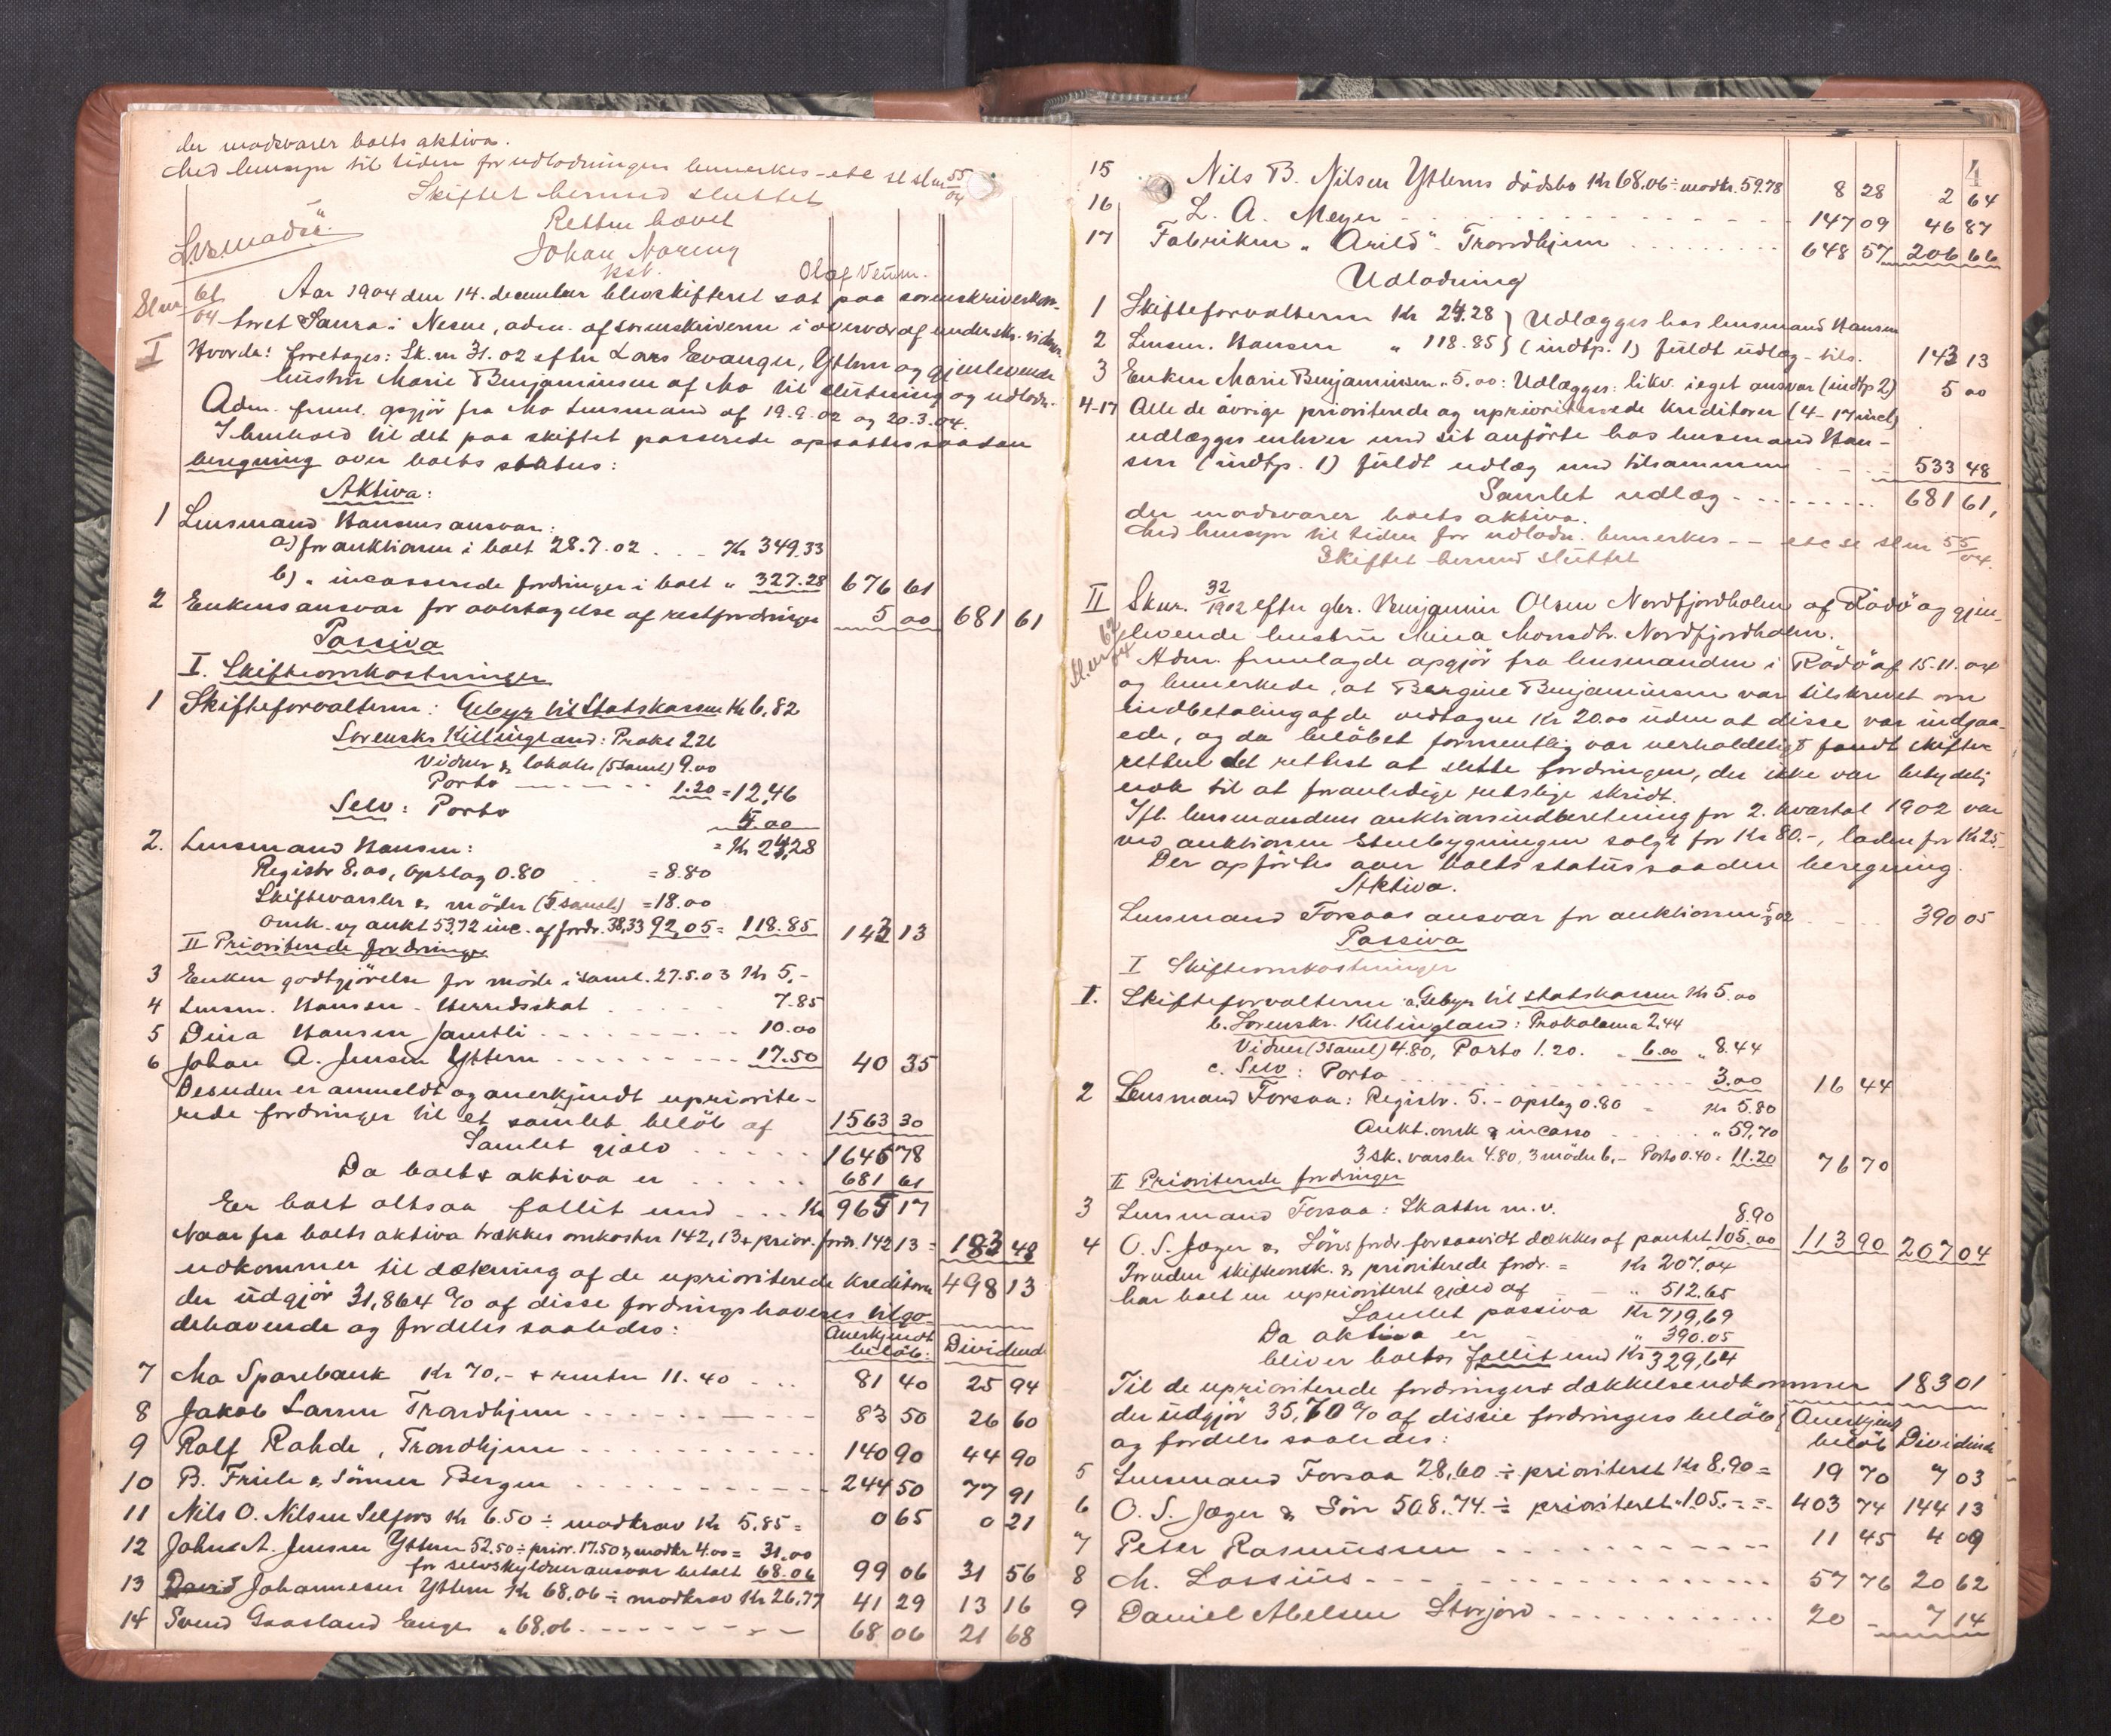 der modsvarer boets aktiva.
Med hensyn til tiden for udlodningen bemerkes – etc se slm 55/04
Skiftet hermed sluttet
Retten hævet
Johan Noreng
kst.
Olaf Veum.
Slnr 61/04
Aar 1904 den 14. december blev skifteret sat paa sorenskriverkon-
toret Sanna i Nesne, adm. af sorenskriveren i overvær af underskr. vidner
I Hvorda! foretoges: Sk. nr 31. 02 efter Lars Evanger, Ytteren og gjenlevende
hustru Marie Benjaminsen af Mo til slutning og udlodn.
Adm. freml. opgjör fra Mo lensmand af 19.9.02 og 20.3.04.
I henhold til det paa skiftet passerede opsattes saadan
beregning over boets status:
Aktiva:
1 Lensmand Hansens ansvar:
a) for auktionen i boet 28.7.02 . . . Kr 349.33
b) „ incasserede fordringer i boet „ 327.28 676 61
2 Enkens ansvar for overtagelse af restfordringer 5 00 681 61
Passiva
I. Skifteomkostninger
1 Skifteforvalteren: Gebyr til Statskassen Kr 6,82
Sorenskr. Killingland: Prokl 2.26
Vidner & lokale (5 saml) 9.00
Porto 1.20 = 12,46
Selv: Porto 5.00
= Kr 24,28
2. Lensmand Hansen:
Registr 8,00, opslag 0.80 = 8.80
Skiftevarsler & möder (5 saml) = 18.00
Omk. ved aukt 53,72 inc. af fordr. 38,33 92,05 = 118.85 143 13
II Prioriterede fordringer
3 Enken godtgjörelse for möde i saml. 27.5.03 Kr 5,-
4 Lensm. Hansen - Herredsskat 7.85
5 Dina Hansen Jamtli 10.00
6 Johan A. Jensen Ytteren 17.50 40 35
Desuden er anmeldt og anerkjendt upriorite-
rede fordringer til et samlet belöb af 1563 30
Samlet gjæld 1646 78
Da boets aktiva er 681 61
Er boet altsaa fallit med . . . Kr 965 17
Naar fra boets aktiva trækkes omkoster 142,13 + prior. fordr. 142 13 = 183 48
udkommer til dækning af de uprioriterede kreditorer 498 13
der udgjör 31,864 % af disse fordringshaveres tilgo-
dehavende og fordeles saaledes:
Anerkjendt belöb: Dividende
7 Mo Sparebank Kr 70,- + renter 11.40 81 40 25 94
8 Jakob Larsen Trondhjem 83 50 26 60
9 Rolf Rohde, Trondhjem 140 90 44 90
10 B. Friele & Sönner Bergen 244 50 77 91
11 Nils O. Nilsen Selfors Kr 6.50 ÷ modkrav Kr 5.85 = 0 65 0 21
12 Johan A. Jensen Ytteren 52,50 ÷ prior. 17.50 & modkr 4.00 = 31.00
for selvskyldneransvar betalt 68.06 99 06 31 56
13 Johannesen Ytteren Kr 68,06 ÷ modkrav Kr 26,77 41 29 13 16
14 Svend Gaasland Enge „ 68,06 68 06 21 68
4
15 Nils B. Nilsen Ytterns dödsbo Kr 68.06 ÷ modkr. 59.78 8 28 2 64
16 L. A. Meyer 147 09 46 87
17 Fabriken „Arild" Trondhjem 648 57 206 66
Udlodning
1 Skifteforvalteren Kr 24.28 } Udlægges hos lensmand Hansen
2 Lensm. Hansen „ 118.85 } (indtp. 1) fuldt udlæg – tils. 143 13
3 Enken Marie Benjaminsen „ 5.00: Udlægges: likv. i eget ansvar (indtp 2) 5 00
4-17 Alle de övrige prioriterede og uprioriterede kreditorer (4 – 17 incl)
udlægges enhver med sit anförte hos lensmand Han-
sen (indtp. 1) fuldt udlæg med tilsammen 533 48
Samlet udlæg 681 61,
der modsvarer boets aktiva.
Med hensyn til tiden for udlodn. bemerkes – – etc se slnr 55/04.
Skiftet hermed sluttet
Slnr 62/04
II Sknr. 32/1902 efter gbr. Benjamin Olsen Nordfjordholmen af Rödö og gjen-
levende hustru Mina Monsdtr. Nordfjordholm.
Adm. fremlagde opgjör fra lensmanden i Rödö af 15.11.04
og bemerkede, at Bergine Benjaminsen var tilskrevet om
indbetaling af de vedtagne Kr 20.00 uden at disse var indgaa-
ede, og da belöbet formentlig var uerholdeligt fandt skifte-
retten det rettest at slette fordringen, der ikke var betydelig
nok til at foranledige retslige skridt.
Ifl. lensmandens auktionsindberetning for 2. kvartal 1902 var
ved auktionen Stuebygningen solgt for Kr 80.-, laden for Kr 25.-
Der opförtes over boets status saadan beregning.
Aktiva.
Lensmand Forsaas ansvar for auktionen 5/3 02 390 05
Passiva
I Skifteomkostninger
1. Skifteforvalteren a. Gebyr til statskassen Kr 5.00
b. Sorenskr. Killingland: Proklama 2,44
Vidner (3 saml) 4.80, Porto 1.20. „ 6.00 „ 8.44
c. Selv: Porto 3.00 16 44
2 Lensmand Forsaa: Registr. 5.- opslag 0.80 Kr 5.80
Aukt. omk & incasso „ 59,70
3 sk. varsler 4.80, 3 möder 6,- Porto 0.40 = 11.20 76 70
II Prioriterede fordringer
3 Lensmand Forsaa: Skatter m. v. 8.90
4 O. S. Jæger & Söns fordr forsaavidt dækkes af pantet 105.00 113 90 207 04
Foruden skifteomk. & prioriterede fordr. = Kr 207.04
har boet en uprioriteret gjæld af „ 512.65
Samlet passiva Kr 719,69
Da aktiva er „ 390.05
bliver boets fallit med Kr 329,64
Til de uprioriterede fordringers dækkelse udkommer 183 01
der udgjör 35,70 % af dissie fordringers belöb
og fordeles saaledes:
Anerkjendt belöb Dividende
5 Lensmand Forsaa 28,60 ÷ prioriteret Kr 8,90 = 19 70 7 03
6 O. S. Jæger & Sön 508.74 ÷ prioriteret „ 105.- = 403 74 144 13
7 Peter Rasmussen 11 45 4 09
8 M. Lossius 57 76 20 62
9 Daniel Abelsen Storjord 20 – 7 14